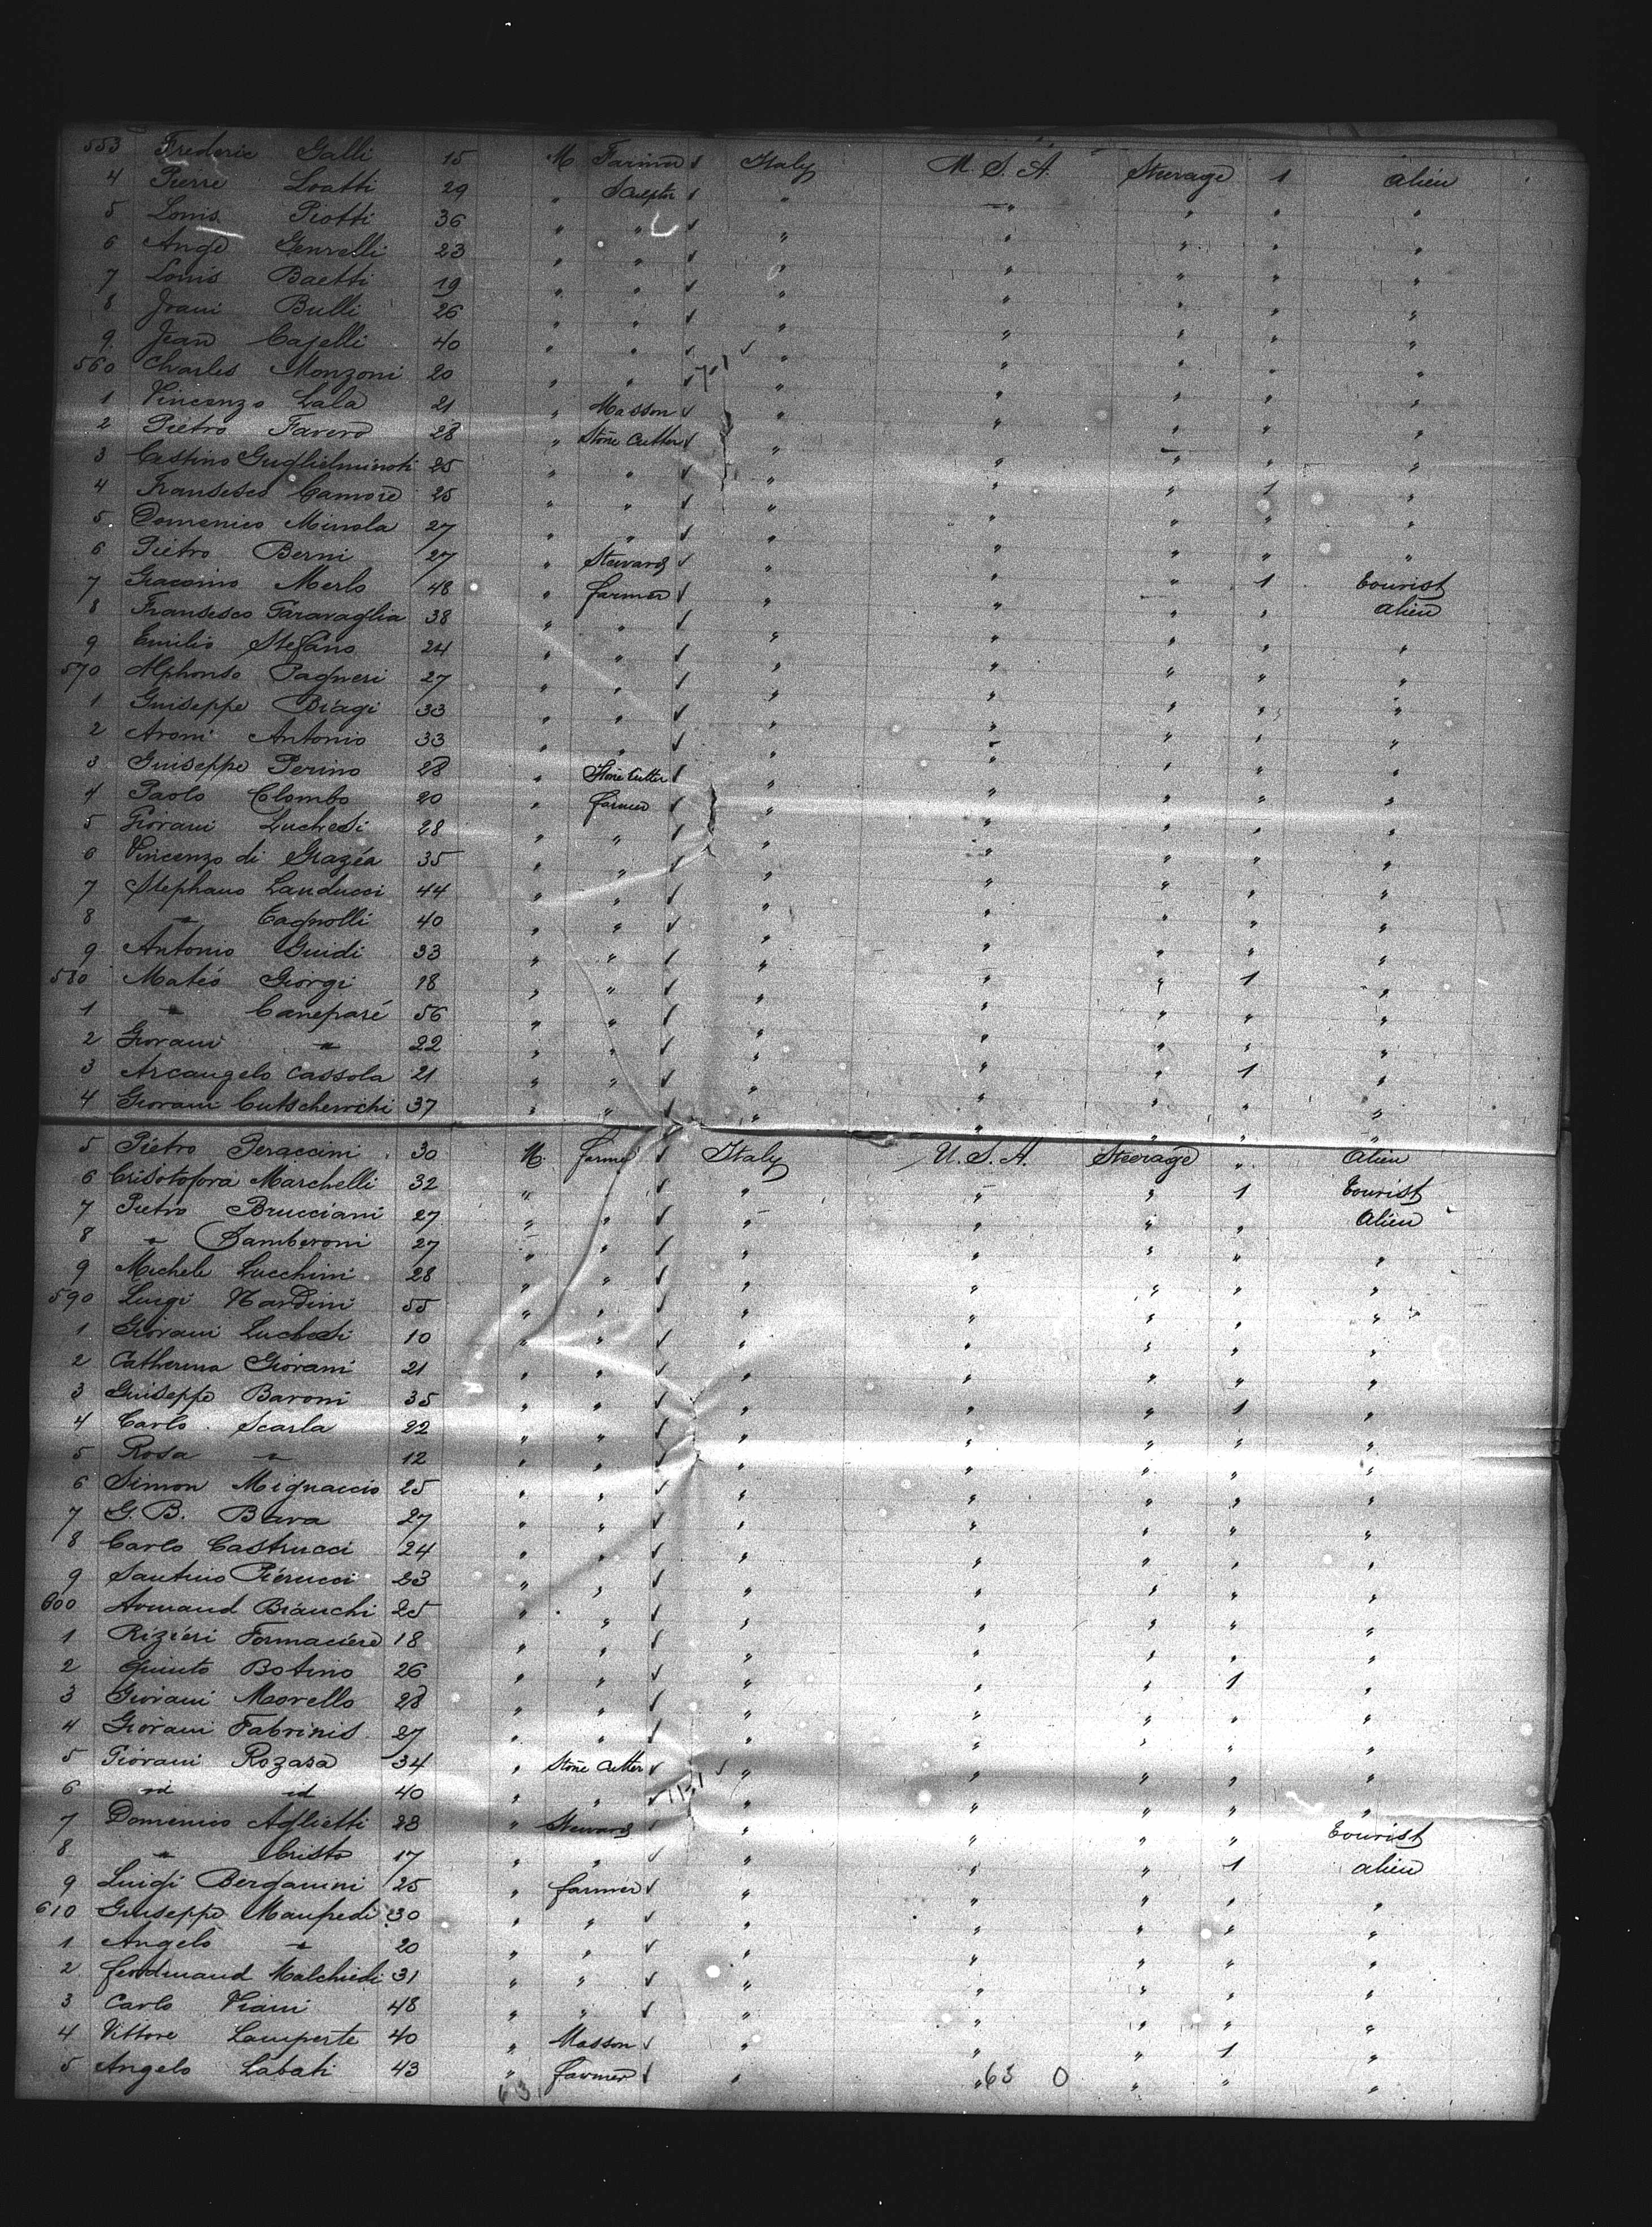 553 Frederic Galli 15 M Farmer ✓ Italy U.S.A. Steerage 1 alien
4 Pierre Loatti 29 " Sculptor ✓ " " " " "
5 Louis Piotti 36 " " ✓ " " " " "
6 Ange Genrelli 23 " " ✓ " " " " "
7 Louis Baetti 19 " " ✓ " " " " "
8 Bulli 26 " " ✓ " " " " "
9 Jean Caselli 40 " " ✓ " " " " "
560 Charles Monzoni 20 " " ✓ " " " " "
1 Vincenzo Lala 21 " Masson ✓ " " " " "
2 Pietro Favero 28 " Stone Cutter ✓ " " " " "
3 Celstino Guglielminoti 25 " " ✓ " " " " "
4 Fransesco Camore 25 " " ✓ " " " 1 "
5 Domenico Minola 27 " " ✓ " " " " "
6 Pietro Berni 27 " Steward ✓ " " " " "
7 Giacomo Merlo 48 " farmer ✓ " " " 1 tourist
8 Fransesco Faravaglia 38 " " ✓ " " " " alien
9 Emilio Stefano 24 " " ✓ " " " " "
570 Alphonso Pagneri 27 " " ✓ " " " " "
1 Guiseppe Biagi 33 " " ✓ " " " " "
2 Aroni Antonio 33 " " ✓ " " " " "
3 Guiseppe Perino 28 " Stone Cutter ✓ " " " " "
4 Paolo Colombo 20 " farmer ✓ " " " " "
5 Giovani Luchesi 28 " " ✓ " " " " "
6 Vincenzo di Grazéa 35 " " ✓ " " " " "
7 Stephano Landucci 44 " " ✓ " " " " "
8 " Cagnolli 40 " " ✓ " " " " "
9 Antonio Guidi 33 " " ✓ " " " " "
580 Matéo Giorgi 18 " " ✓ " " " 1 "
1 " Canepasé 56 " " ✓ " " " " "
2 Giovani " 22 " " ✓ " " " " "
3 Arcangelo Cassola 21 " " ✓ " " " 1 "
4 Giovani 37 " " ✓ " " " " "
5 Piétro Peraccini 30 M. farmer ✓ Italy U.S.A. Steerage " alien
6 Crisotofora Marchelli 32 " " ✓ " " " 1 tourist
7 Pietro Brucciani 27 " " ✓ " " " " alien
8 " Bamberoni 27 " " ✓ " " " " "
9 Michele Lucchini 28 " " ✓ " " " " "
590 Luigi Nardini 55 " " ✓ " " " " "
1 Giovani Luchesi 10 " " ✓ " " " " "
2 Catherina Giovani 21 " " ✓ " " " " "
3 Guiseppe Baroni 35 " " ✓ " " " 1 "
4 Carlo Scarla 22 " " ✓ " " " " "
5 Rosa " 12 " " ✓ " " " " "
6 Simon Mignaccio 25 " " ✓ " " " " "
7 G. B. Bava 27 " " ✓ " " " " "
8 Carlo Castrucci 24 " " ✓ " " " " "
9 Santino Piérucci 23 " " ✓ " " " " "
600 Armand Bianchi 25 " " ✓ " " " " "
1 Riziéri Formaciere 18 " " ✓ " " " " "
2 Quinto Botino 26 " " ✓ " " " 1 "
3 Giovani Morello 28 " " ✓ " " " " "
4 Giovani Fabrinis 27 " " ✓ " " " " "
5 Giovani Rozasa 34 " Stone Cutter ✓ " " " " "
6 id id 40 " " ✓ " " " " "
7 Domenico Aglietti 28 " Steward ✓ " " " " tourist
8 " Cristo 17 " " ✓ " " " 1 alien
9 Luigi Bergamini 25 " farmer ✓ " " " " "
610 Guiseppe Manfredi 30 " " ✓ " " " " "
1 Angelo " 20 " " ✓ " " " " "
2 Ferdinand Malchiedi 31 " " ✓ " " " " "
3 Carlo Viani 48 " " ✓ " " " " "
4 Vittore Lamperte 40 " Masson ✓ " " " 1 "
5 Angelo Labati 43 " farmer ✓ " " " " "
63 63 0